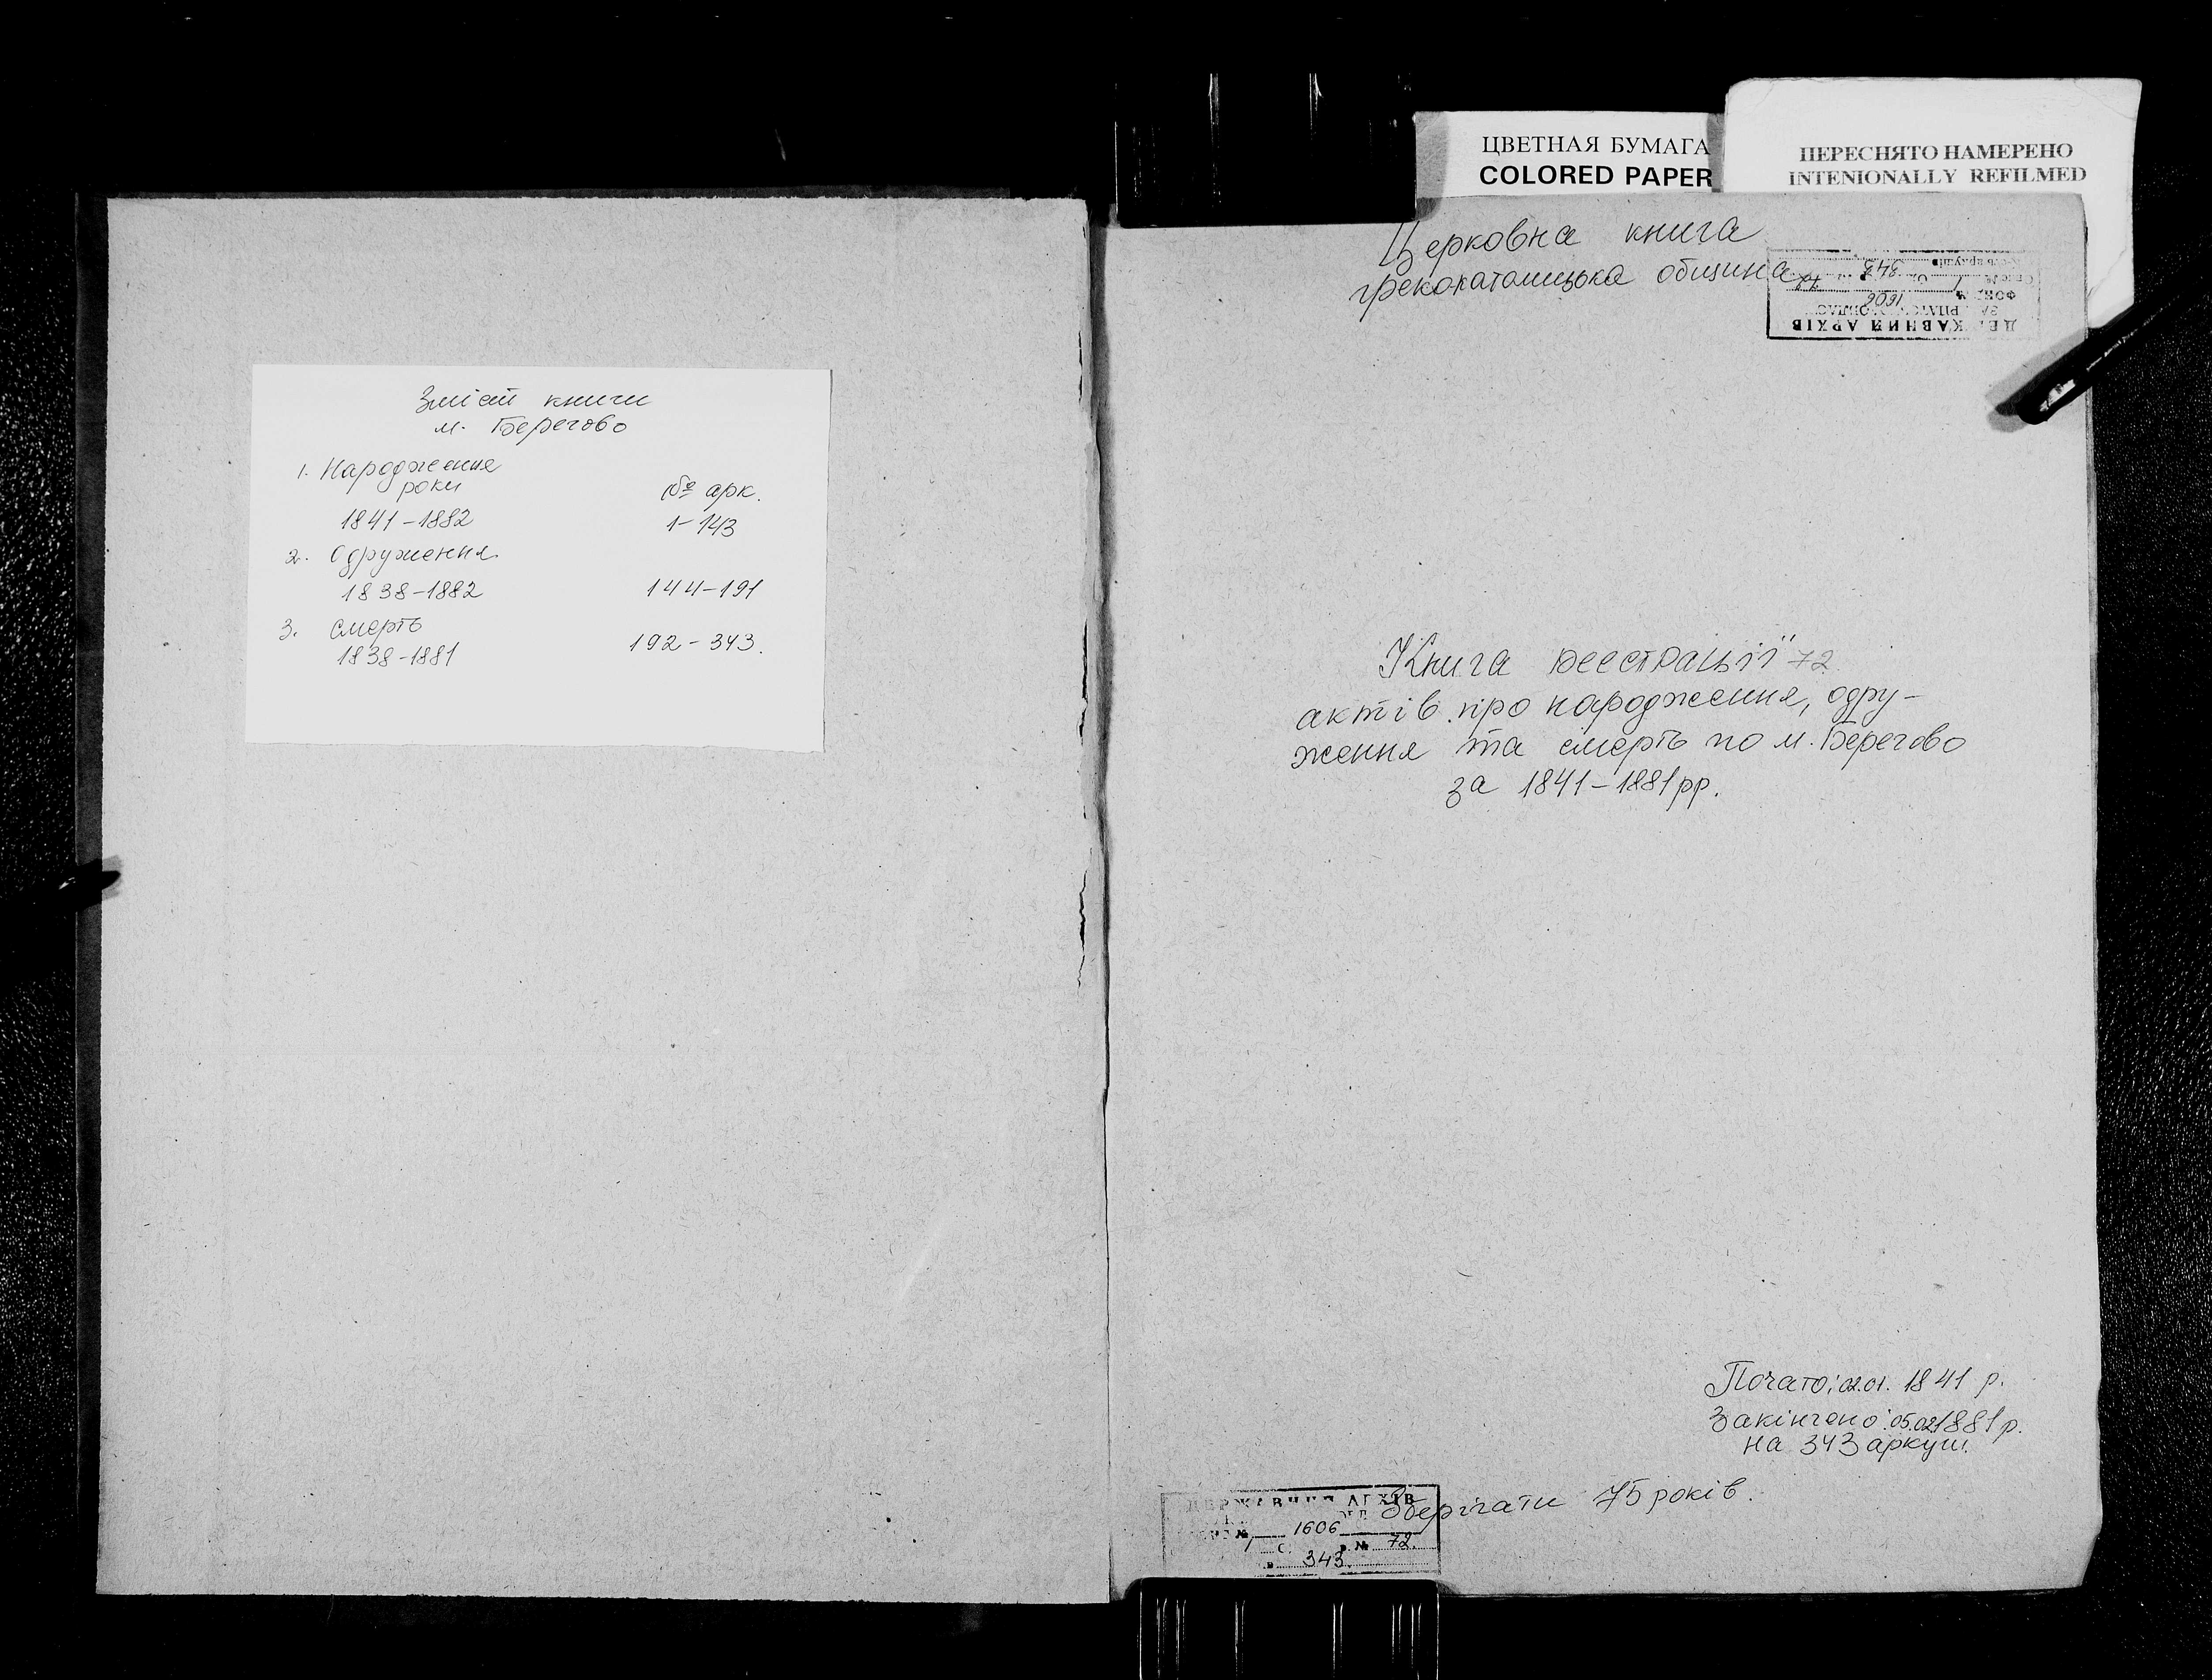 Зміст книги
м. Берегово
1. Народження
роки
№ арк.
1841-1882
1-143
2. Одруження
1838-1882
144-191
3. смерть
1838-1881
192-343.
ЦВЕТНАЯ БУМАГА
COLORED PAPER
ПЕРЕСНЯТО НАМЕРЕНО
INTENIONALLY REFILMED
Церковна книга
грекокатолицька община
ДЕРЖАВНИЙ АРХІВ
1606
343
Книга реєстрації 72
актів про народження, одру-
ження та смерть по м. Берегово
за 1841-1881 рр.
Почато: 02.01. 1841 р.
Закінчено: 05.02 1881 р.
на 343 аркуш.
Зберігати 75 років.
ДЕРЖАВНИЙ АРХІВ
№ 1606
1 № 72.
343.